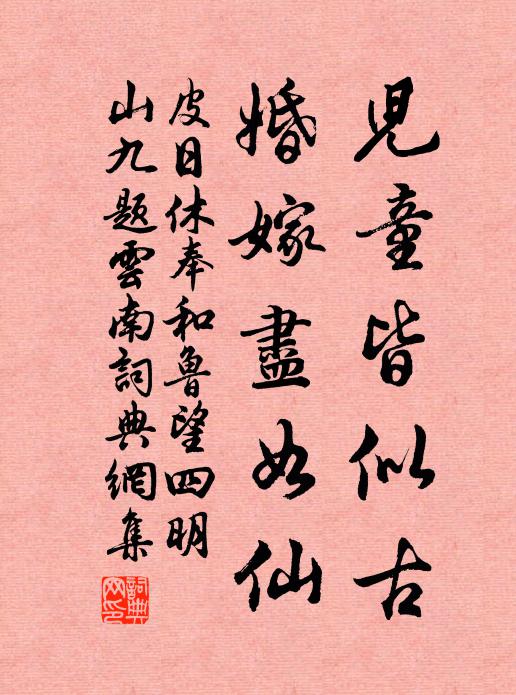 兒童皆似古
婚嫁盡如仙
皮日休奉和魯望四明
山九題雲南詞典網集
詞典網印